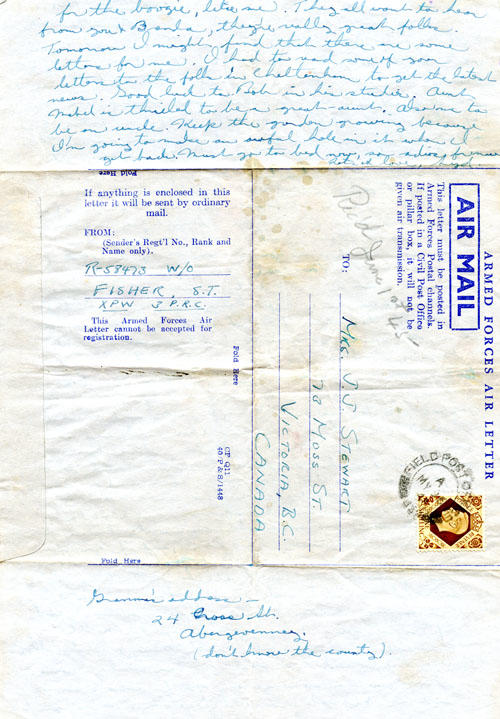 for the boogie, like me. They all want to hear
from you & Brenda, they're really great folks.
Tomorrow I might find that there are some
letters for me. I had to read some of your
letters to the folks in Cheltenham to get the latest
news. Good luck to Bob in his studies. Aunt
Mabel is thrilled to be a great-aunt. Also me to
be an uncle. Keep the garden growing because
I'm going to make an awful hole in it when I
get back. Must go to bed now, so
Fold Here
If anything is enclosed in this
letter it will be sent by ordinary
mail.
FROM:
(Sender's Regt'l No., Rank and
Name only).
R-58473 W/O
FISHER S.T.
XPW 3 P.R.C.
This Armed Forces Air
Letter cannot be accepted for
registration.
Fold Here
CP Q11
40/P & S/1448
Fold Here
ARMED FORCES AIR LETTER
AIR MAIL
This letter must be posted in
Armed Forces Postal channels.
If posted in a Civil Post Office
or pillar box, it will not be
given air transmission.
Rcd June 1st 45
TO:
MRS. J.J. STEWART
73 MOSS ST.
VICTORIA, B.C.
CANADA
FIELD POST
MY
Grannie's address –
24 Cross St.
Abergevenney.
(don't know the county).